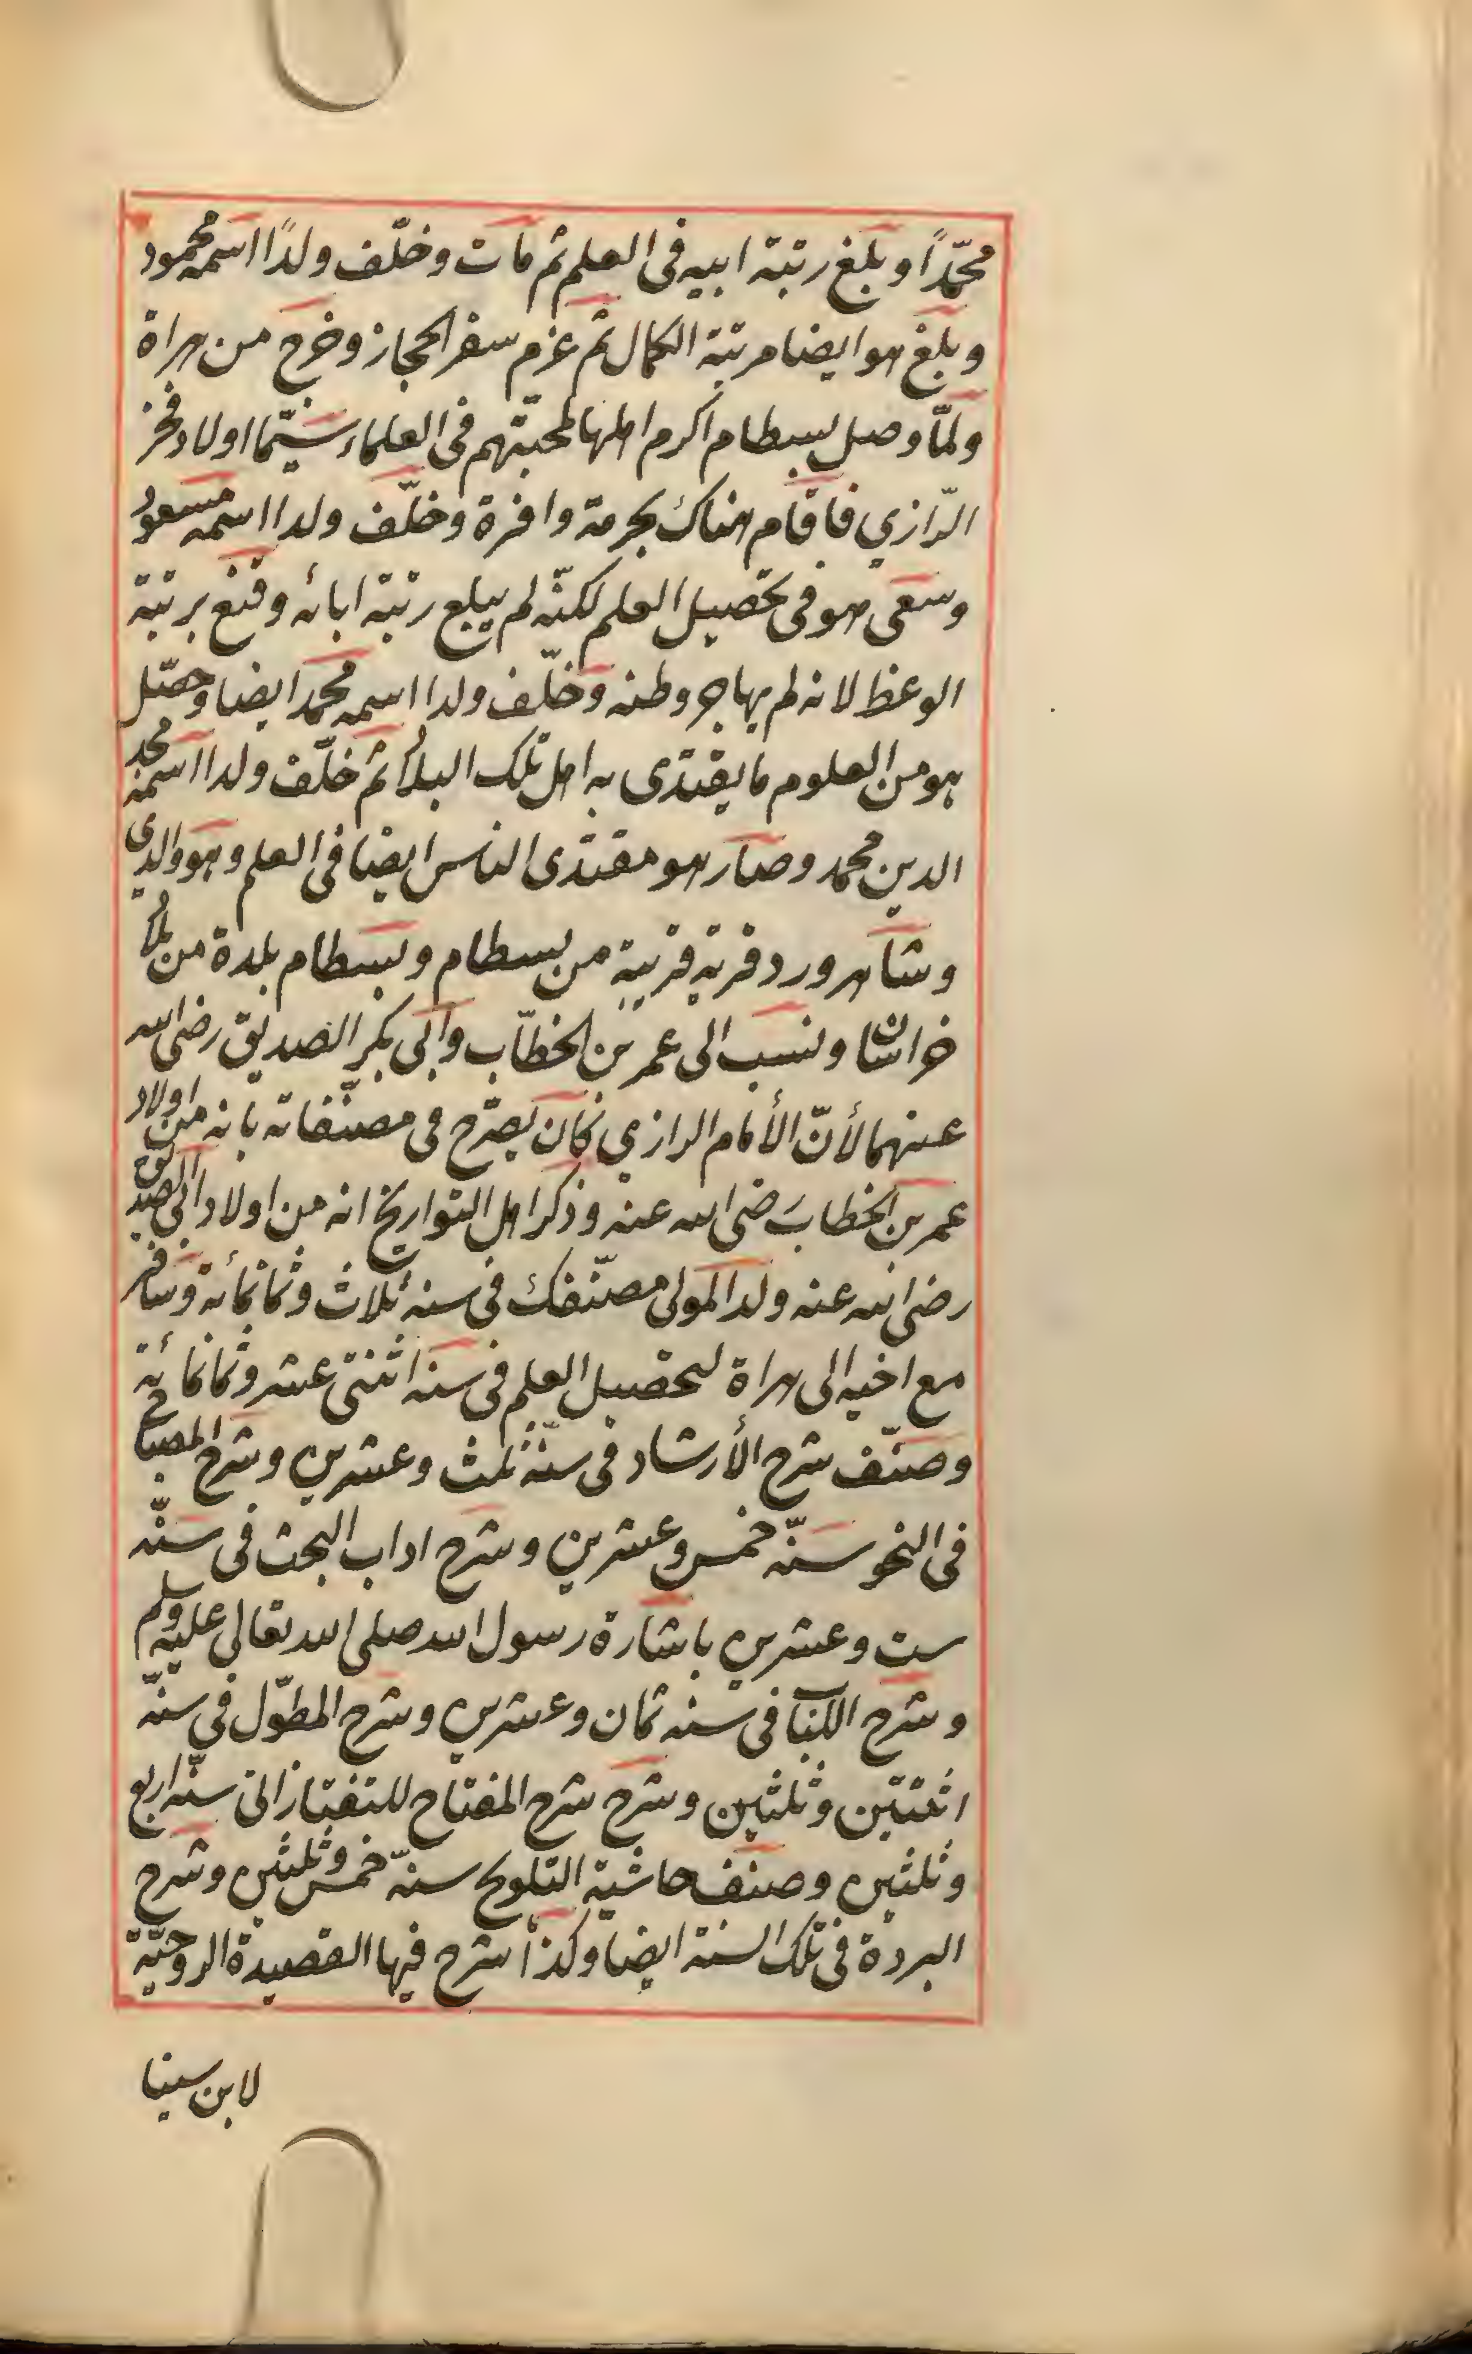 محمّدًا وبلغ رتبة ابيه فى العلم ثم مات وخلّف ولدًا اسمه محمود
وبلغ هو ايضا مرتبة الكمال ثم عزم سفر الحجاز وخرج من هراة
ولمّا وصل بسطام اكرم اهلها لمحبّتهم فى العلماء سيّما اولاد فخر
الرّازي فاقام هناك بحرمة وافرة وخلّف ولدا اسمه مسعود
وسعى هو فى تحصيل العلم لكنّه لم يبلع رتبة ابائه وقنع برتبة
الوعظ لانه لم يهاجر وطنه وخلّف ولدا اسمه محمد ايضا وحصّل
هو من العلوم ما يقتدى به اهل تلك البلاد ثم خلّف ولدا اسمه مجد
الدين محمد وصار هو مقتدى الناس ايضا فى العلم وهو والدى
وشاهرورد قرية قريبة من بسطام وبسطام بلدة من بلاد
خراسان ونسب الى عمر بن الخطّاب وابى بكر الصديق رضى الله
عنهما لأنّ الأمام الرازي كان يصرّح فى مصنّفاته بانه من اولاد
عمر بن الخطاب رضى الله عنه وذكر اهل التواريخ انه من اولاد ابى الصديق
رضى الله عنه ولد المولى مصنّفك فى سنة ثلاث وثمانمائة وسافر
مع اخيه الى هراة لتحصيل العلم فى سنة اثنتى عشر وثمانمائة
وصنّف شرح الأرشاد فى سنّة ثلث وعشرين وشرح المصباح
فى النحو سنّة خمس وعشرين وشرح اداب البحث فى سنّة
ست وعشرين باشارة رسول الله صلى الله تعالى عليه وسلم
وشرح اللباب فى سنة ثمان وعشرين وشرح المطوّل فى سنّة
اثنتين وثلثين وشرح شرح المفتاح للتفتازانى سنّة اربع
وثلثين وصنف حاشية التلويح سنّة خمس وثلثين وشرح
البردة فى تلك السنة ايضا وكذا شرح فيها القصيدة الروحيّة
لابن سينا